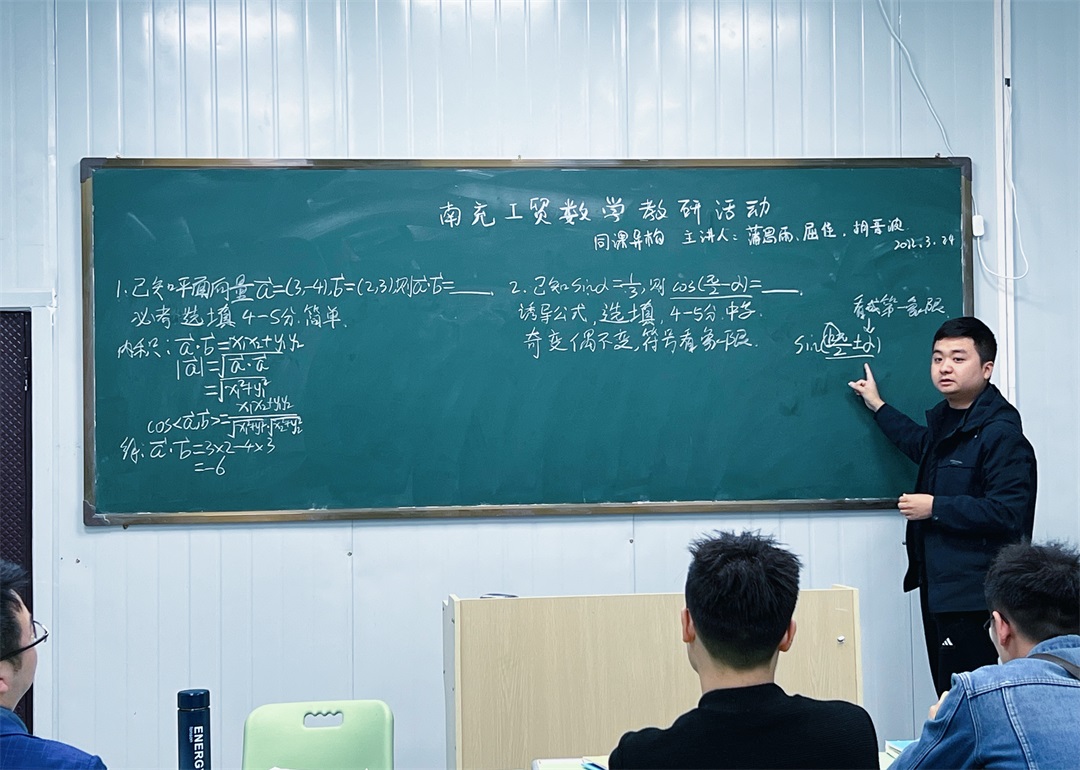 南充工贸数学教研活动
同课异构 主讲人：蒲思雨、屈佳、胡晋波
3.24
1.已知平面向量a⃗=(3,-4),b⃗=(2,3),则a⃗·b⃗=____.
必考 选填 4-5分.简单.
内积: a⃗·b⃗=x₁x₂+y₁y₂
|a⃗|=√(a⃗·a⃗)
=√(x₁²+y₁²)
cos<a⃗,b⃗>=(x₁x₂+y₁y₂)/(√(x₁²+y₁²)·√(x₂²+y₂²))
解: a⃗·b⃗=3×2-4×3
=-6
2.已知sinα=1/3,则cos(π/2-α)=____.
诱导公式,选填,4-5分.中等.
奇变偶不变,符号看象限.
看成第一象限
sin(kπ/2±α)
ENERGY